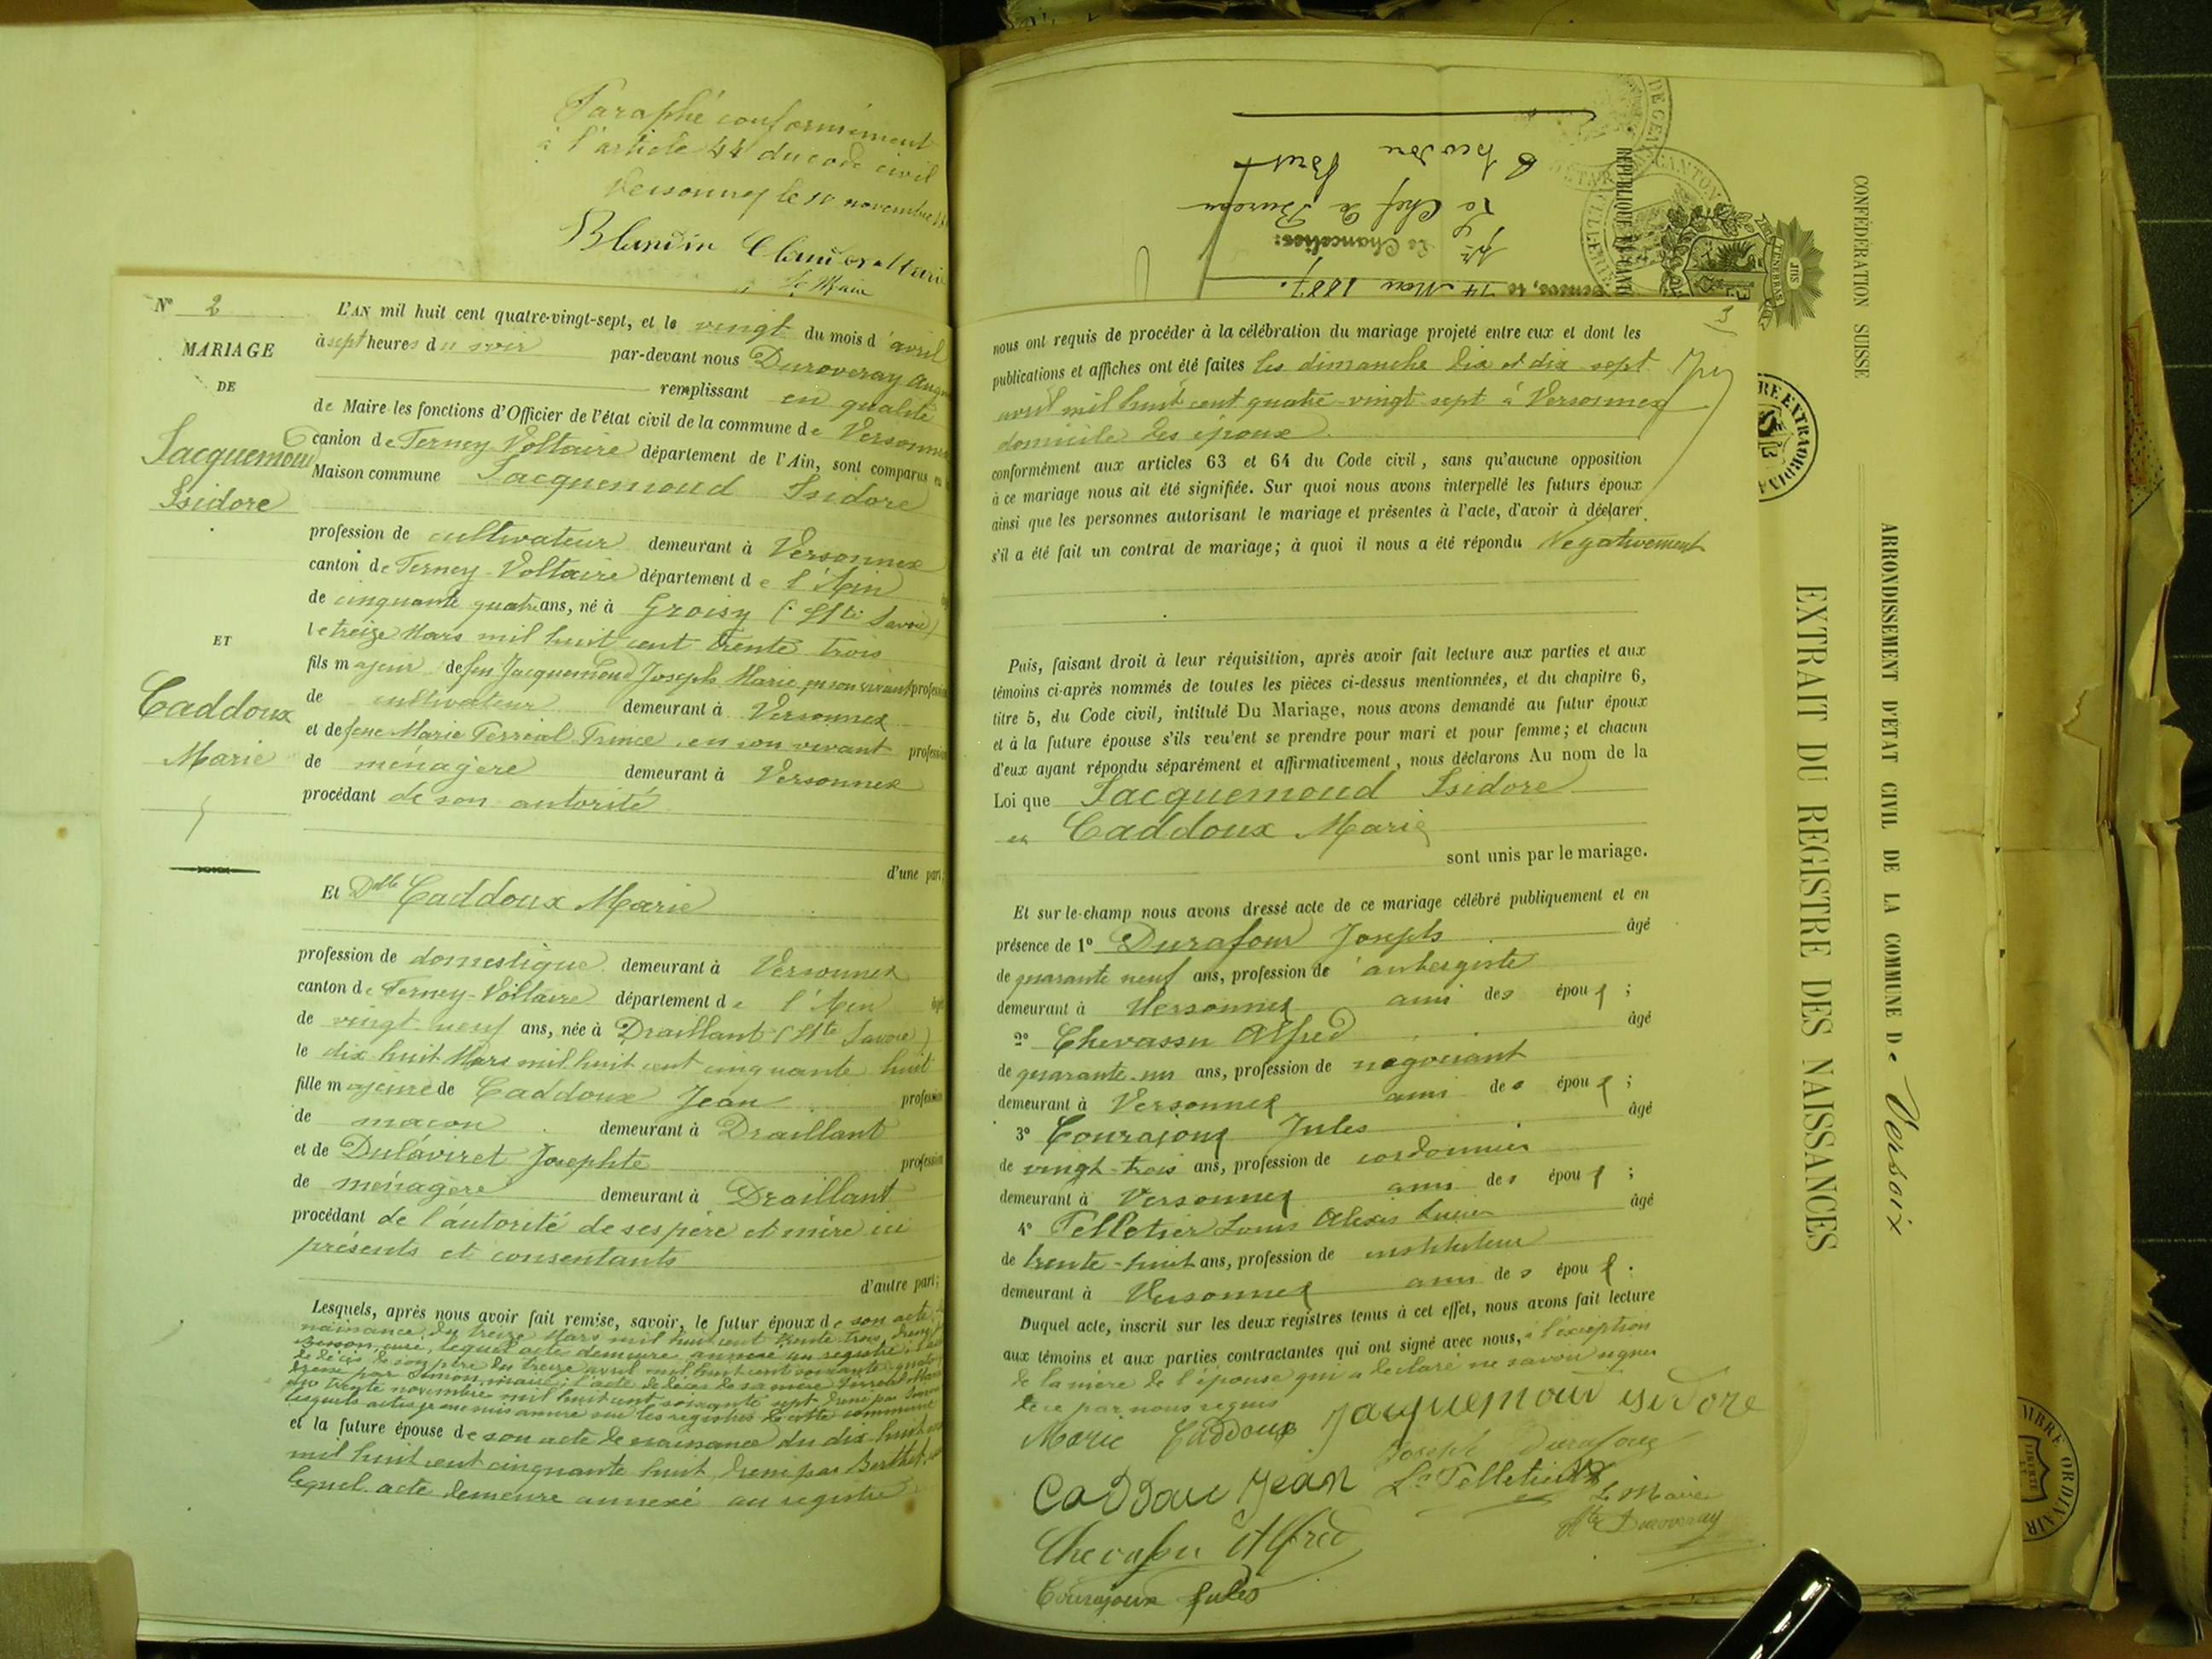 Paraphé conformément
à l'article 44 du code civil
Versonnex le 10 novembre
Blandin Claude Marie
le Maire
N° 2
MARIAGE
DE
Jacquemoud
Isidore
ET
Caddoux
Marie
L'AN mil huit cent quatre-vingt-sept, et le vingt du mois d'avril
à sept heures du soir par-devant nous Duroveray
remplissant en qualité
de Maire les fonctions d'Officier de l'état civil de la commune de Versonnex
canton de Ferney Voltaire département de l'Ain, sont comparus en
Maison commune Jacquemoud Isidore
profession de cultivateur demeurant à Versonnex
canton de Ferney-Voltaire département de l'Ain
de cinquante quatre ans, né à Groisy (Hte Savoie)
le treize Mars mil huit cent trente trois
fils majeur de feu Jacquemoud Joseph Marie en son vivant profession
de cultivateur demeurant à Versonnex
et de feue Marie Terréal en son vivant profession
de ménagère demeurant à Versonnex
procédant de son autorité
d'une part;
Et Dlle Caddoux Marie
profession de domestique demeurant à Versonnex
canton de Ferney-Voltaire département de l'Ain
de vingt-neuf ans, née à Draillant (Hte Savoie)
le dix huit Mars mil huit cent cinquante huit
fille majeure de Caddoux Jean profession
de maçon demeurant à Draillant
et de Dulaviret Josephte profession
de ménagère demeurant à Draillant
procédant de l'autorité de ses père et mère ici
présents et consentants
d'autre part;
Lesquels, après nous avoir fait remise, savoir, le futur époux de son acte de
naissance du treize Mars mil huit cent trente trois,
lequel acte demeure annexé au registre; l'acte
de décès de son père du treize avril mil huit cent soixante quatre
dressé par Simon, maire; l'acte de décès de sa mère Terréal Marie
du trente novembre mil huit cent soixante sept dressé par Simon
lesquels actes sur les registres de cette commune
et la future épouse de son acte de naissance du dix-huit
mil huit cent cinquante huit, dressé par Berthet,
lequel acte demeure annexé au registre
Genève, le 14 Mars 1887.
Le Chancelier:
Le Chef de Bureau
Théodore
RÉPUBLIQUE
POST TENEBRAS
JHS
nous ont requis de procéder à la célébration du mariage projeté entre eux et dont les
publications et affiches ont été faites les dimanche dix et dix sept
avril mil huit cent quatre-vingt sept à Versonnex
domicile des époux
conformément aux articles 63 et 64 du Code civil, sans qu'aucune opposition
à ce mariage nous ait été signifiée. Sur quoi nous avons interpellé les futurs époux
ainsi que les personnes autorisant le mariage et présentes à l'acte, d'avoir à déclarer
s'il a été fait un contrat de mariage; à quoi il nous a été répondu Négativement
Puis, faisant droit à leur réquisition, après avoir fait lecture aux parties et aux
témoins ci-après nommés de toutes les pièces ci-dessus mentionnées, et du chapitre 6,
titre 5, du Code civil, intitulé Du Mariage, nous avons demandé au futur époux
et à la future épouse s'ils veulent se prendre pour mari et pour femme; et chacun
d'eux ayant répondu séparément et affirmativement, nous déclarons Au nom de la
Loi que Jacquemoud Isidore
et Caddoux Marie
sont unis par le mariage.
Et sur-le-champ nous avons dressé acte de ce mariage célébré publiquement et en
présence de 1° Durafour Joseph âgé
de quarante neuf ans, profession de aubergiste
demeurant à Versonnex ami des époux;
2° Chevassu Alfred âgé
de quarante-un ans, profession de négociant
demeurant à Versonnex ami des époux;
3° Courajoux Jules âgé
de vingt-trois ans, profession de cordonnier
demeurant à Versonnex ami des époux;
4° Pelletier Louis Alexis Lucien âgé
de trente-huit ans, profession de instituteur
demeurant à Versonnex ami des époux.
Duquel acte, inscrit sur les deux registres tenus à cet effet, nous avons fait lecture
aux témoins et aux parties contractantes qui ont signé avec nous, à l'exception
de la mère de l'épouse qui a déclaré ne savoir signer
de ce par nous requis
Marie Caddoux Jacquemoud isidore
Joseph Durafour
Caddoux Jean Ls Pelletier
Le Maire
Duroveray
Chevassu Alfred
Courajoux Jules
CONFÉDÉRATION SUISSE
ARRONDISSEMENT D'ÉTAT CIVIL DE LA COMMUNE De Versoix
EXTRAIT DU REGISTRE DES NAISSANCES